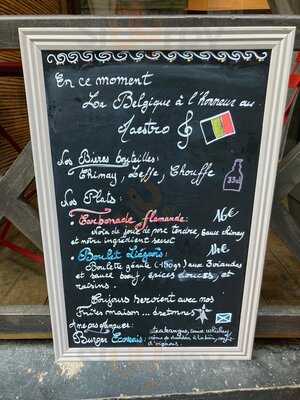 En ce moment
La Belgique à l'honneur au
Maestro
Nos Bieres bouteilles:
Chimay, Leffe, Chouffe
33cl
Nos Plats:
• Carbonade flamande: 16€
noix de joue de porc tendre, sauce chimay
et notre ingrédient secret
• Boulet Liégeois:
Boulette géante (180gr) aux 3 viandes
et sauce boeuf, épices douces, et
raisins.
Toujours servient avec nos
Frites maison ... énormes
Burger Ecossais:
d'oignons